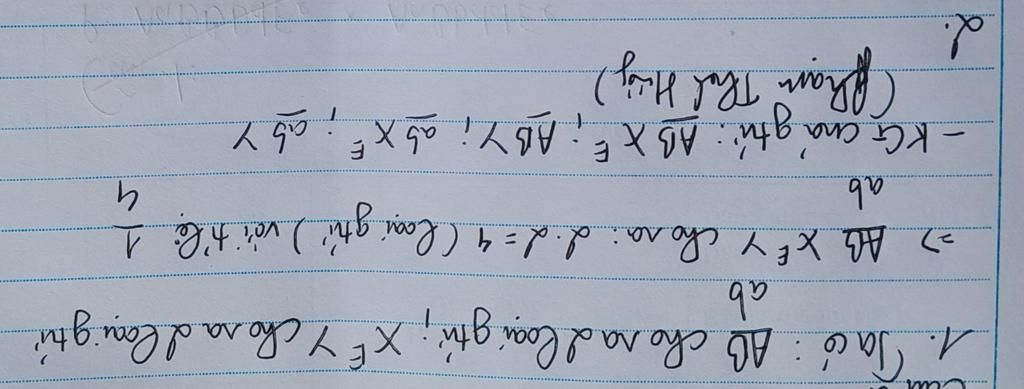 1. Ta có: AB/ab cho ra 2 loại gtử; X^E Y cho ra 2 loại gtử
=> AB/ab X^E Y cho ra: 2.2 = 4 (loại gtử) với tỉ lệ: 1/4
- KG của gtử: AB X^E; AB Y; ab X^E; ab Y
(Phạm Thế Huy)
2.